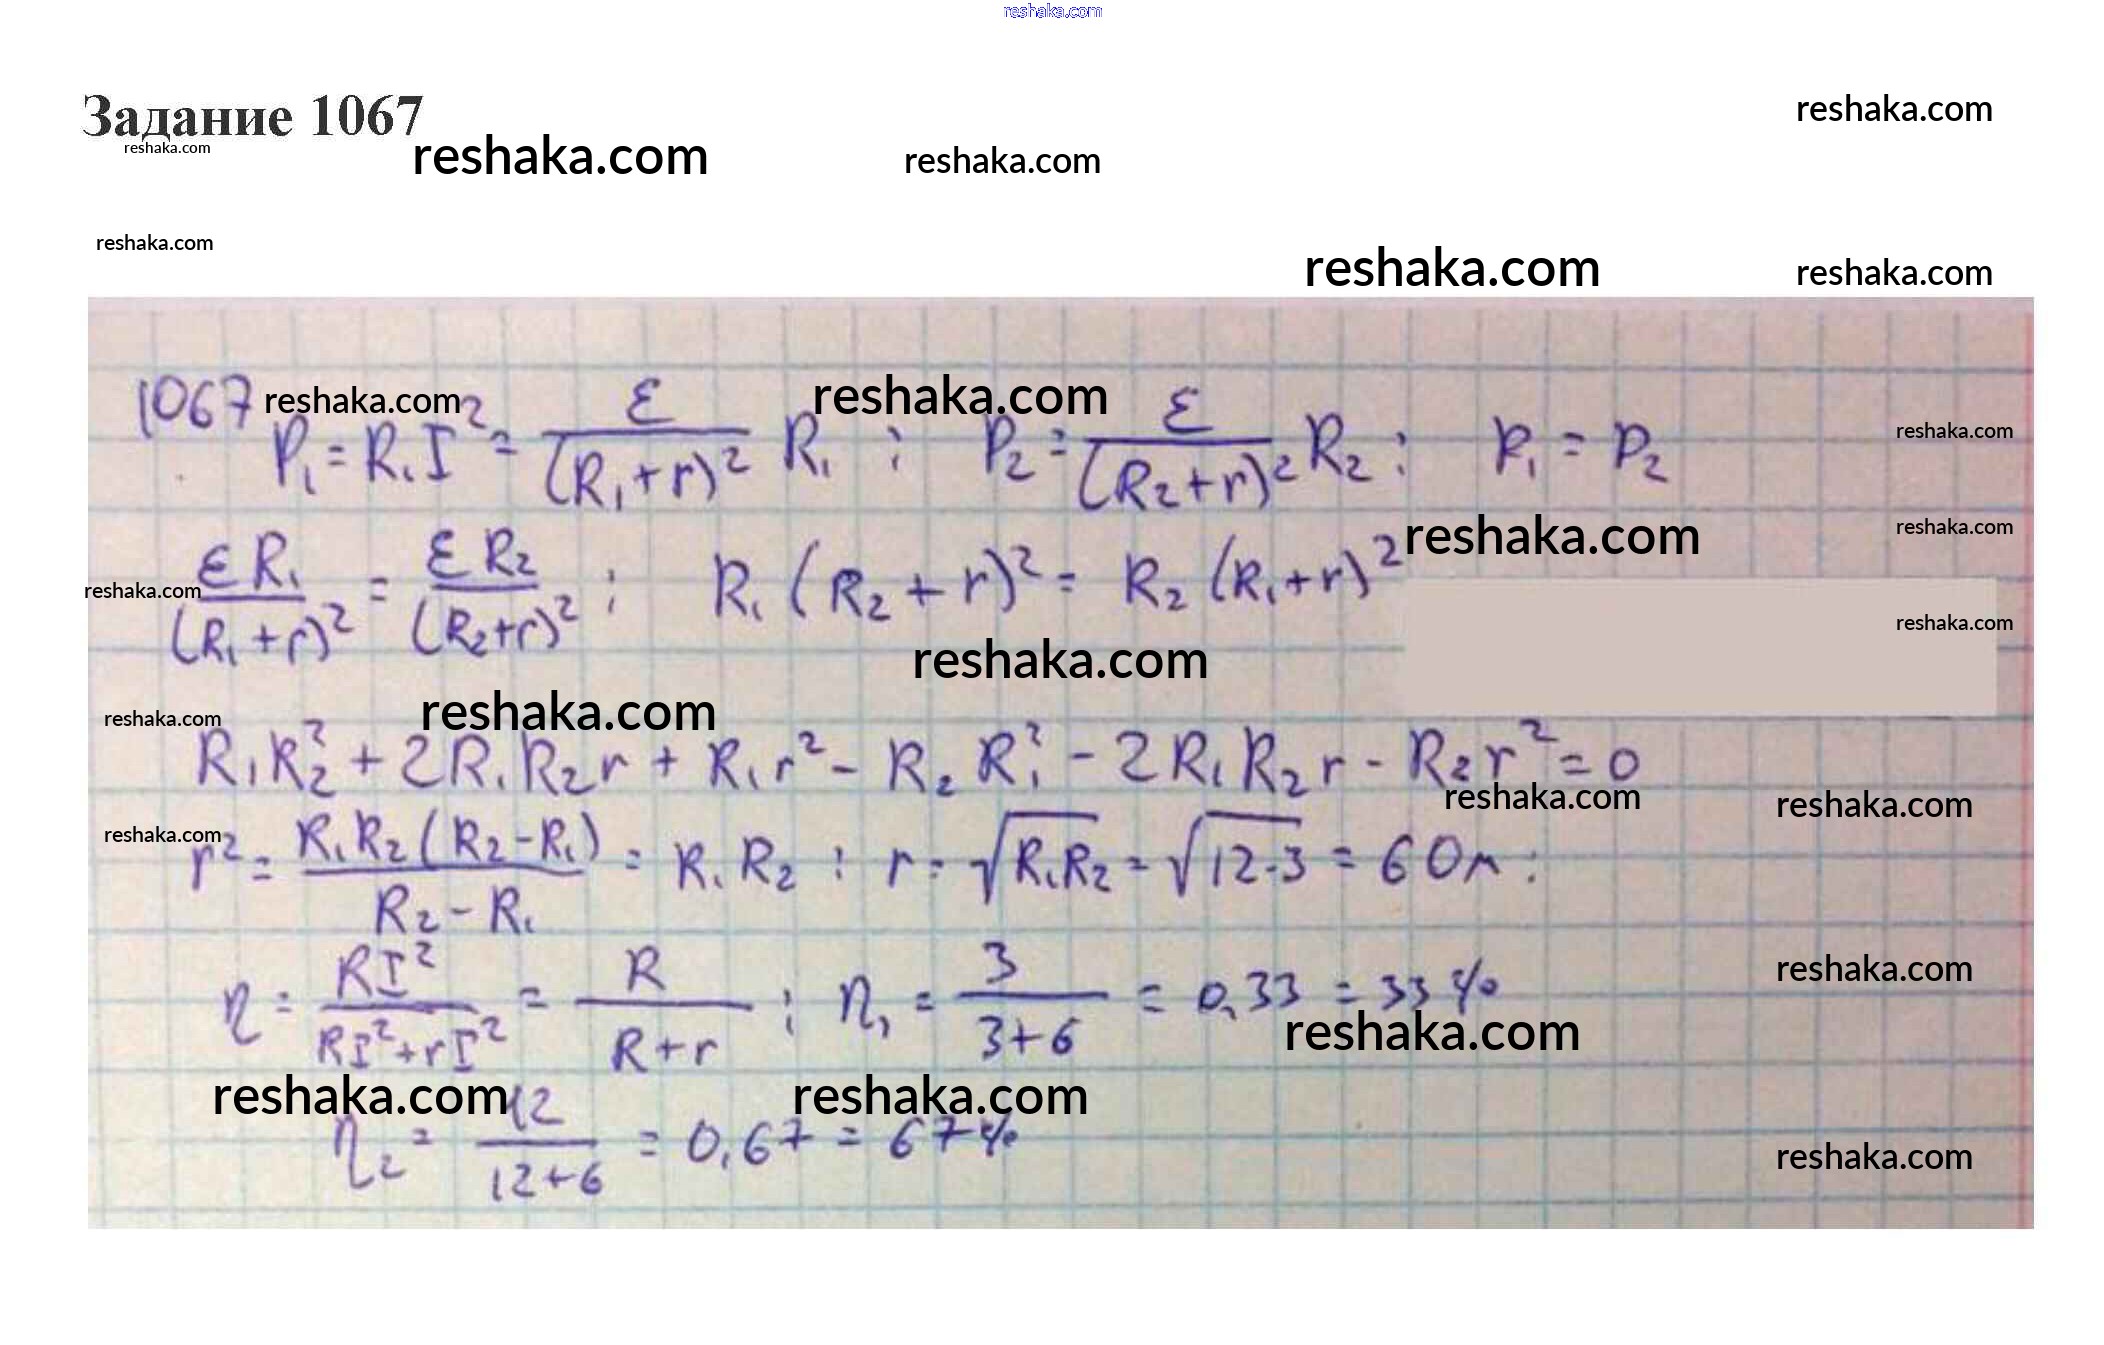 reshaka.com
Задание 1067
reshaka.com
reshaka.com
reshaka.com
reshaka.com
reshaka.com
reshaka.com
reshaka.com
reshaka.com
1067 reshaka.com reshaka.com
P₁ = R₁I² = ε/(R₁+r)² R₁ ; P₂ = ε/(R₂+r)² R₂ ; P₁ = P₂
reshaka.com
reshaka.com
reshaka.com
εR₁/(R₁+r)² = εR₂/(R₂+r)² ; R₁(R₂+r)² = R₂(R₁+r)²
reshaka.com
reshaka.com
reshaka.com
reshaka.com
reshaka.com
R₁R₂² + 2R₁R₂r + R₁r² - R₂R₁² - 2R₁R₂r - R₂r² = 0
reshaka.com
reshaka.com
reshaka.com
r² = R₁R₂(R₂-R₁)/(R₂-R₁) = R₁R₂ ; r = √(R₁R₂) = √(12·3) = 6 Ом ;
reshaka.com
η = RI²/(RI²+rI²) = R/(R+r) ; η₁ = 3/(3+6) = 0,33 = 33%
reshaka.com
reshaka.com
reshaka.com
η₂ = 12/(12+6) = 0,67 = 67%
reshaka.com